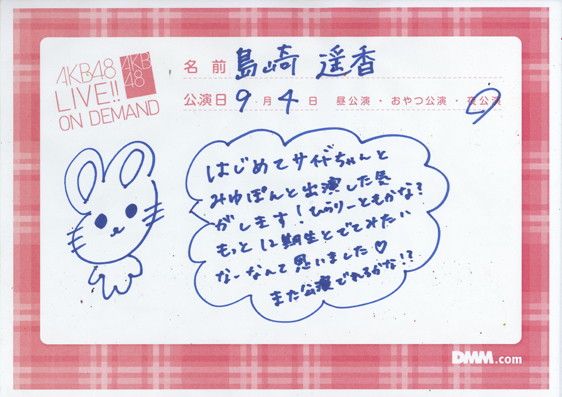 AKB48
LIVE!!
ON DEMAND
AKB
48
名前 島崎 遥香
公演日 9月4日 昼公演・おやつ公演・夜公演
はじめてサイドちゃんと
みゆぽんと出演した気
がします!ひらりーともかな?
もっと12期生とでてみたい
なーなんて思いました♡
また公演でれるかな!?
DMM.com